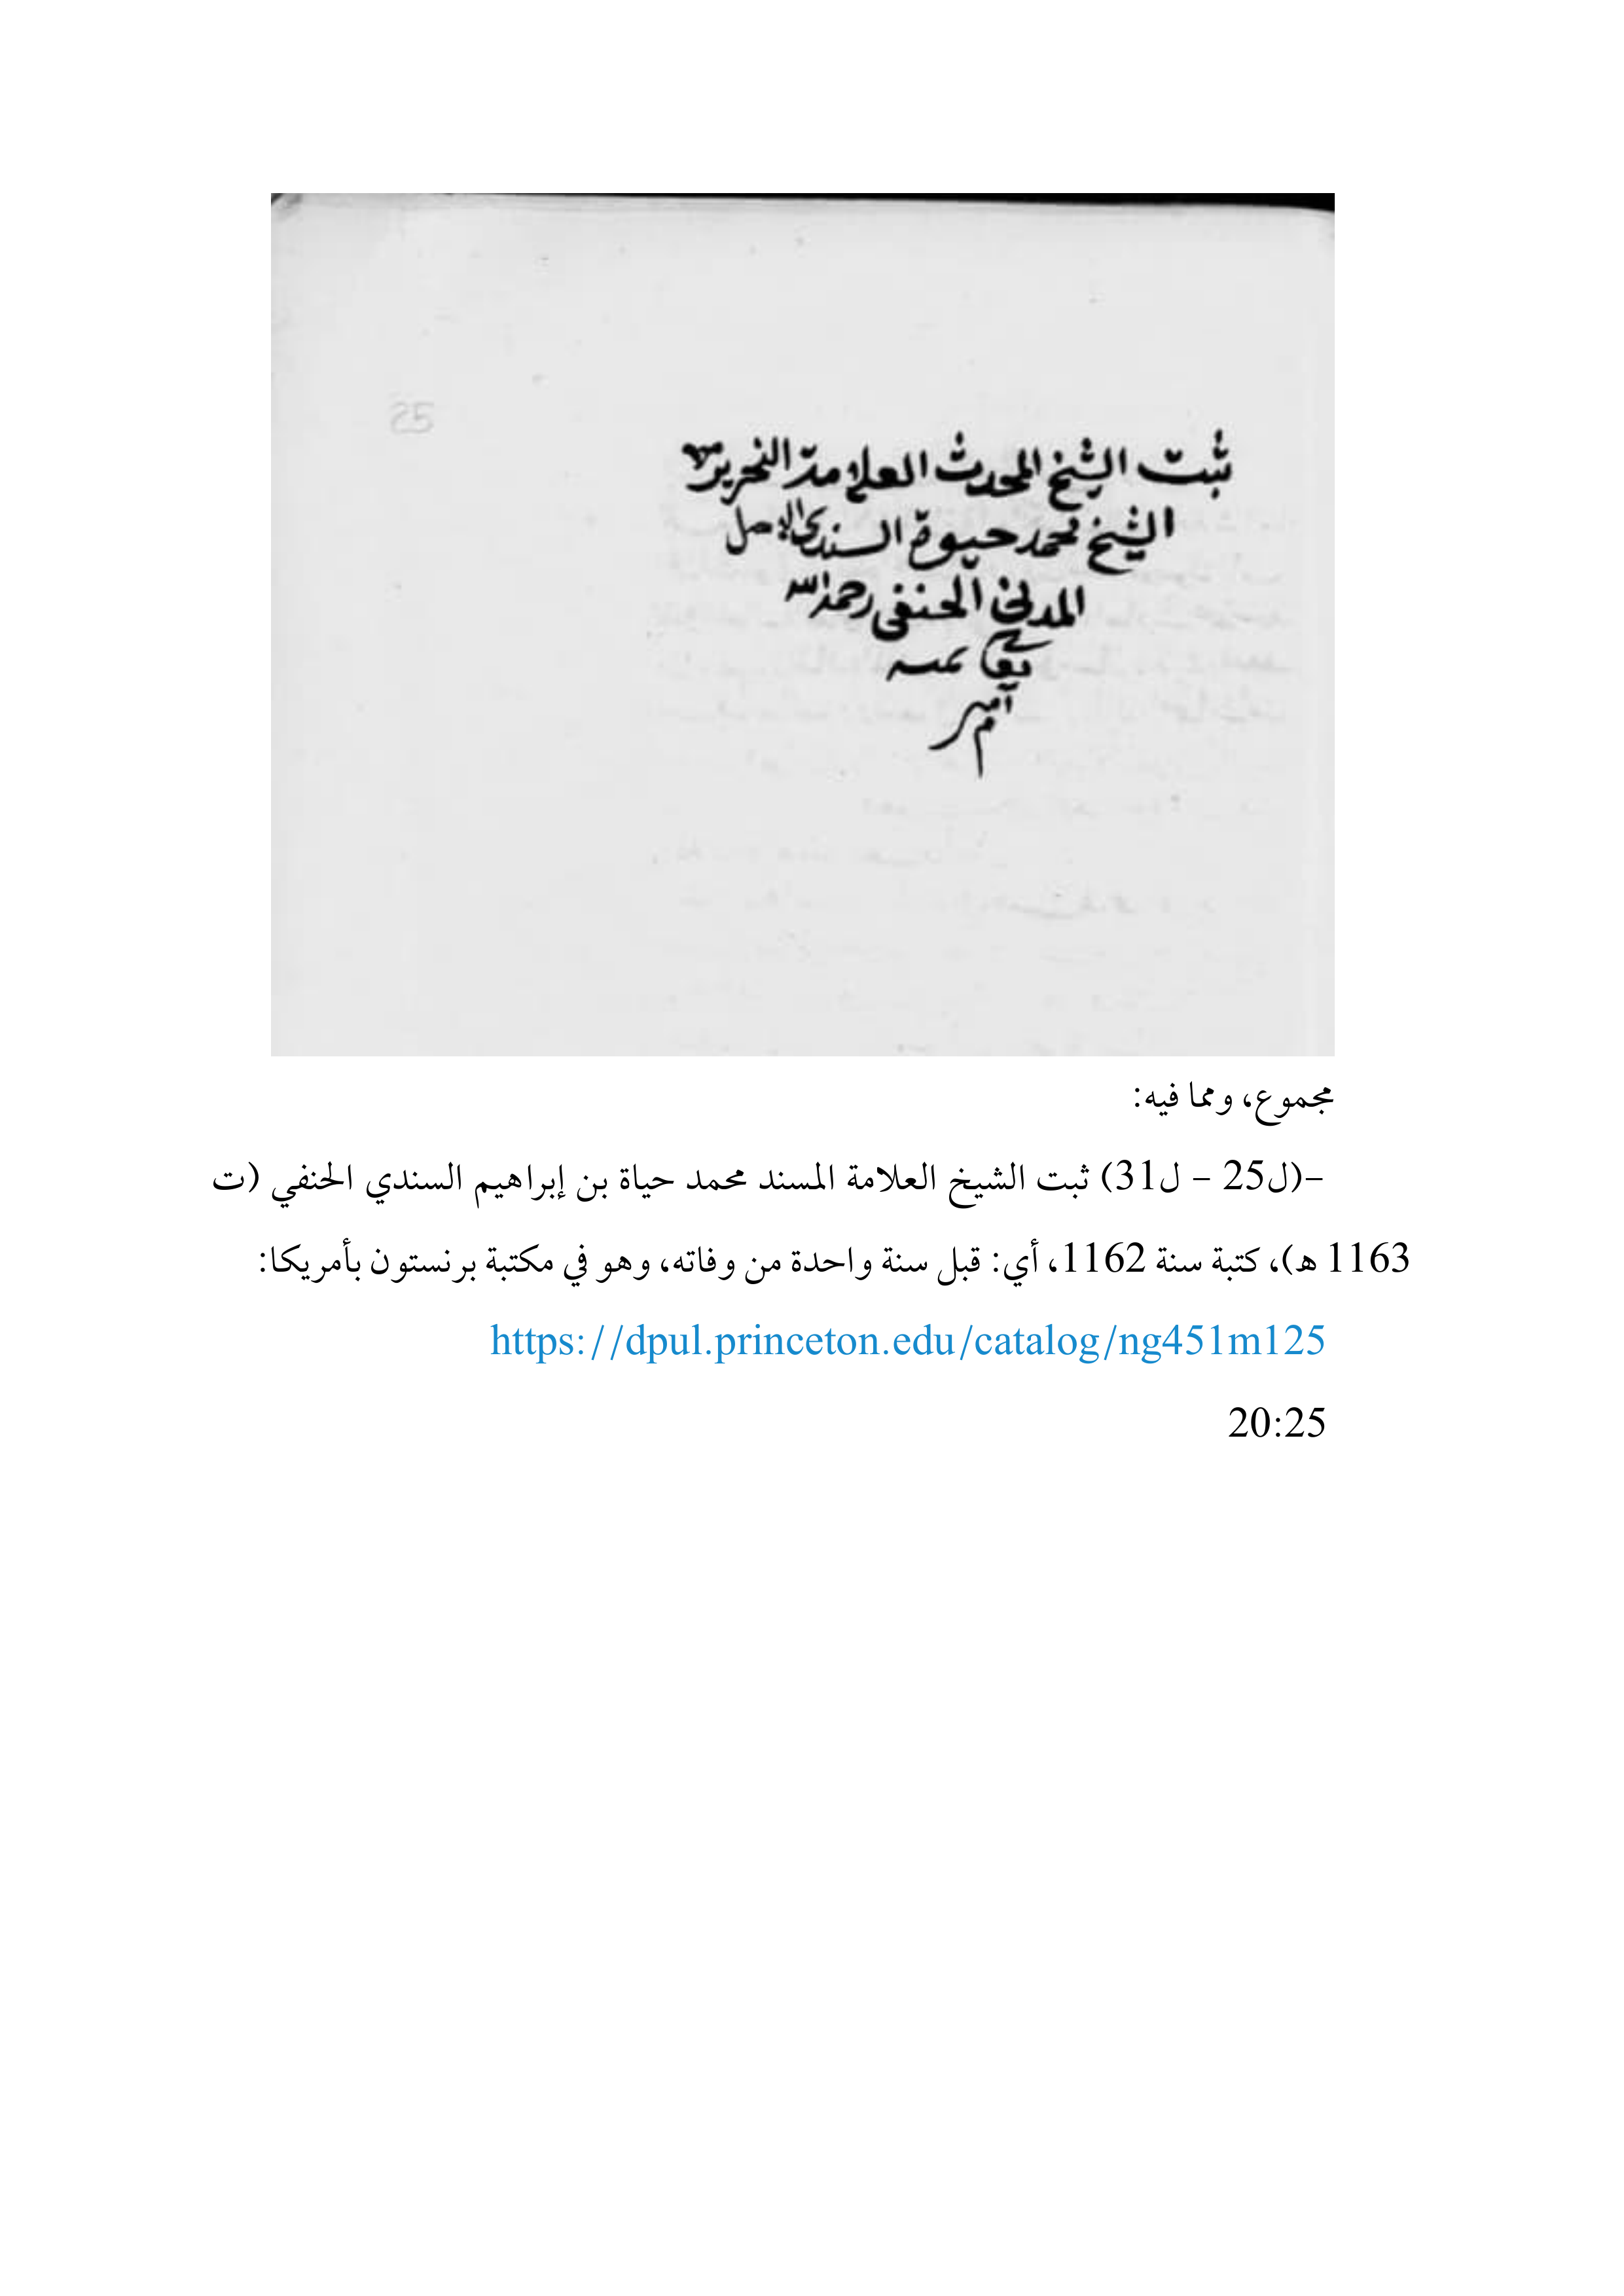 25
ثبت الشيخ المحدث العلامة النحرير
الشيخ محمد حيوة السندي الاصل
المدني الحنفي رحمه الله
تعالى
آمين
مجموع، ومما فيه:
-(ل25 - ل31) ثبت الشيخ العلامة المسند محمد حياة بن إبراهيم السندي الحنفي (ت
1163 ه)، كتبة سنة 1162، أي: قبل سنة واحدة من وفاته، وهو في مكتبة برنستون بأمريكا:
https://dpul.princeton.edu/catalog/ng451m125
20:25